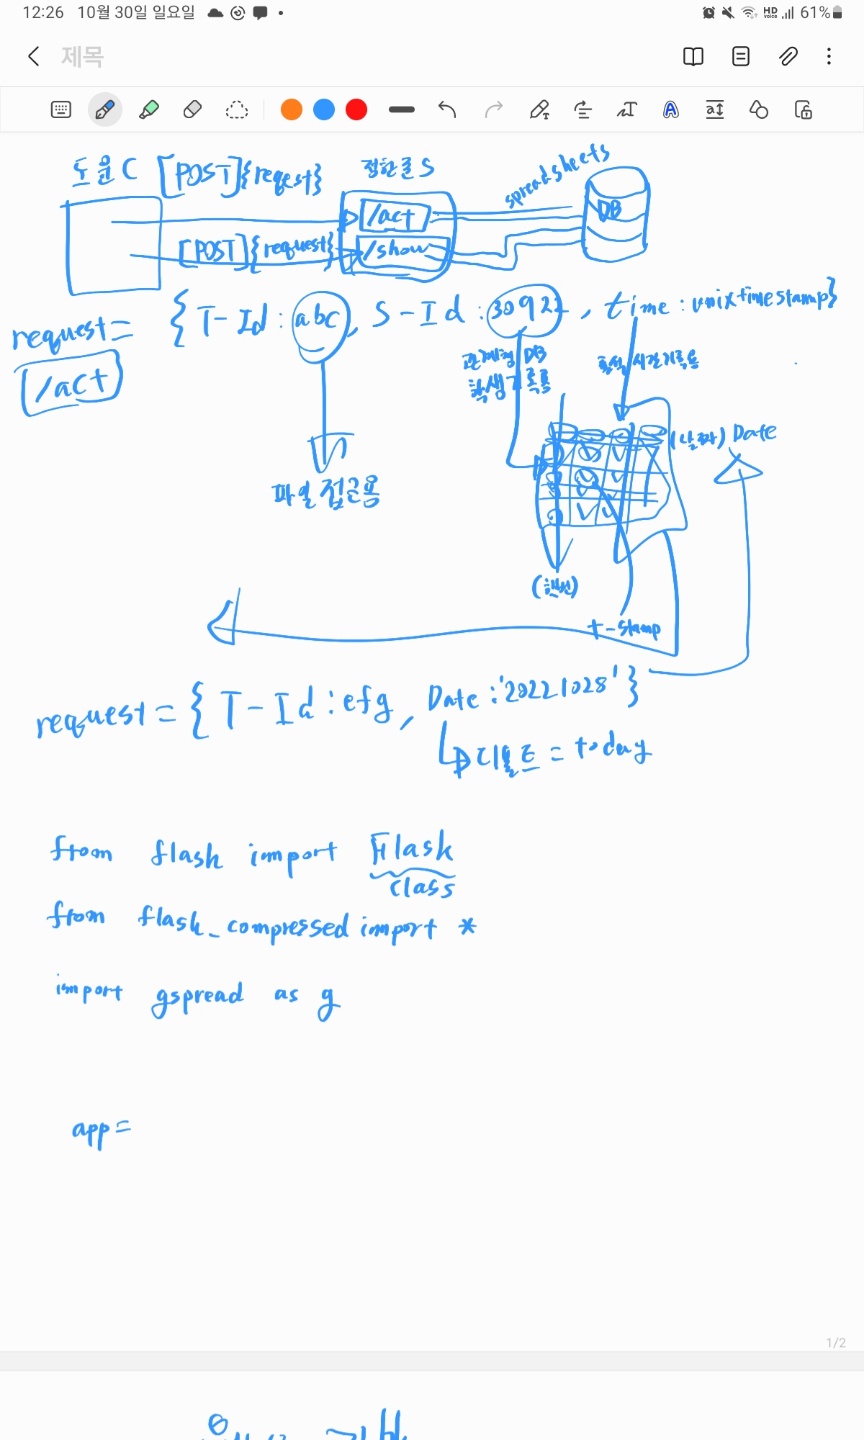 12:26 10월 30일 일요일 61%
제목
도윤C [POST]{reqest} S
/act spreadsheets DB
[POST]{request} /show
request= {T-Id:abc, S-Id:30921, time:unixtimestamp}
/act
관계형 DB
학생기록용 시간기록용
(날짜) Date
파일 접근용
t-stamp
request={T-Id:efg, Date:'20221028'}
디폴트=today
from flash import Flask
class
from flask_compressed import *
import gspread as g
app=
1/2